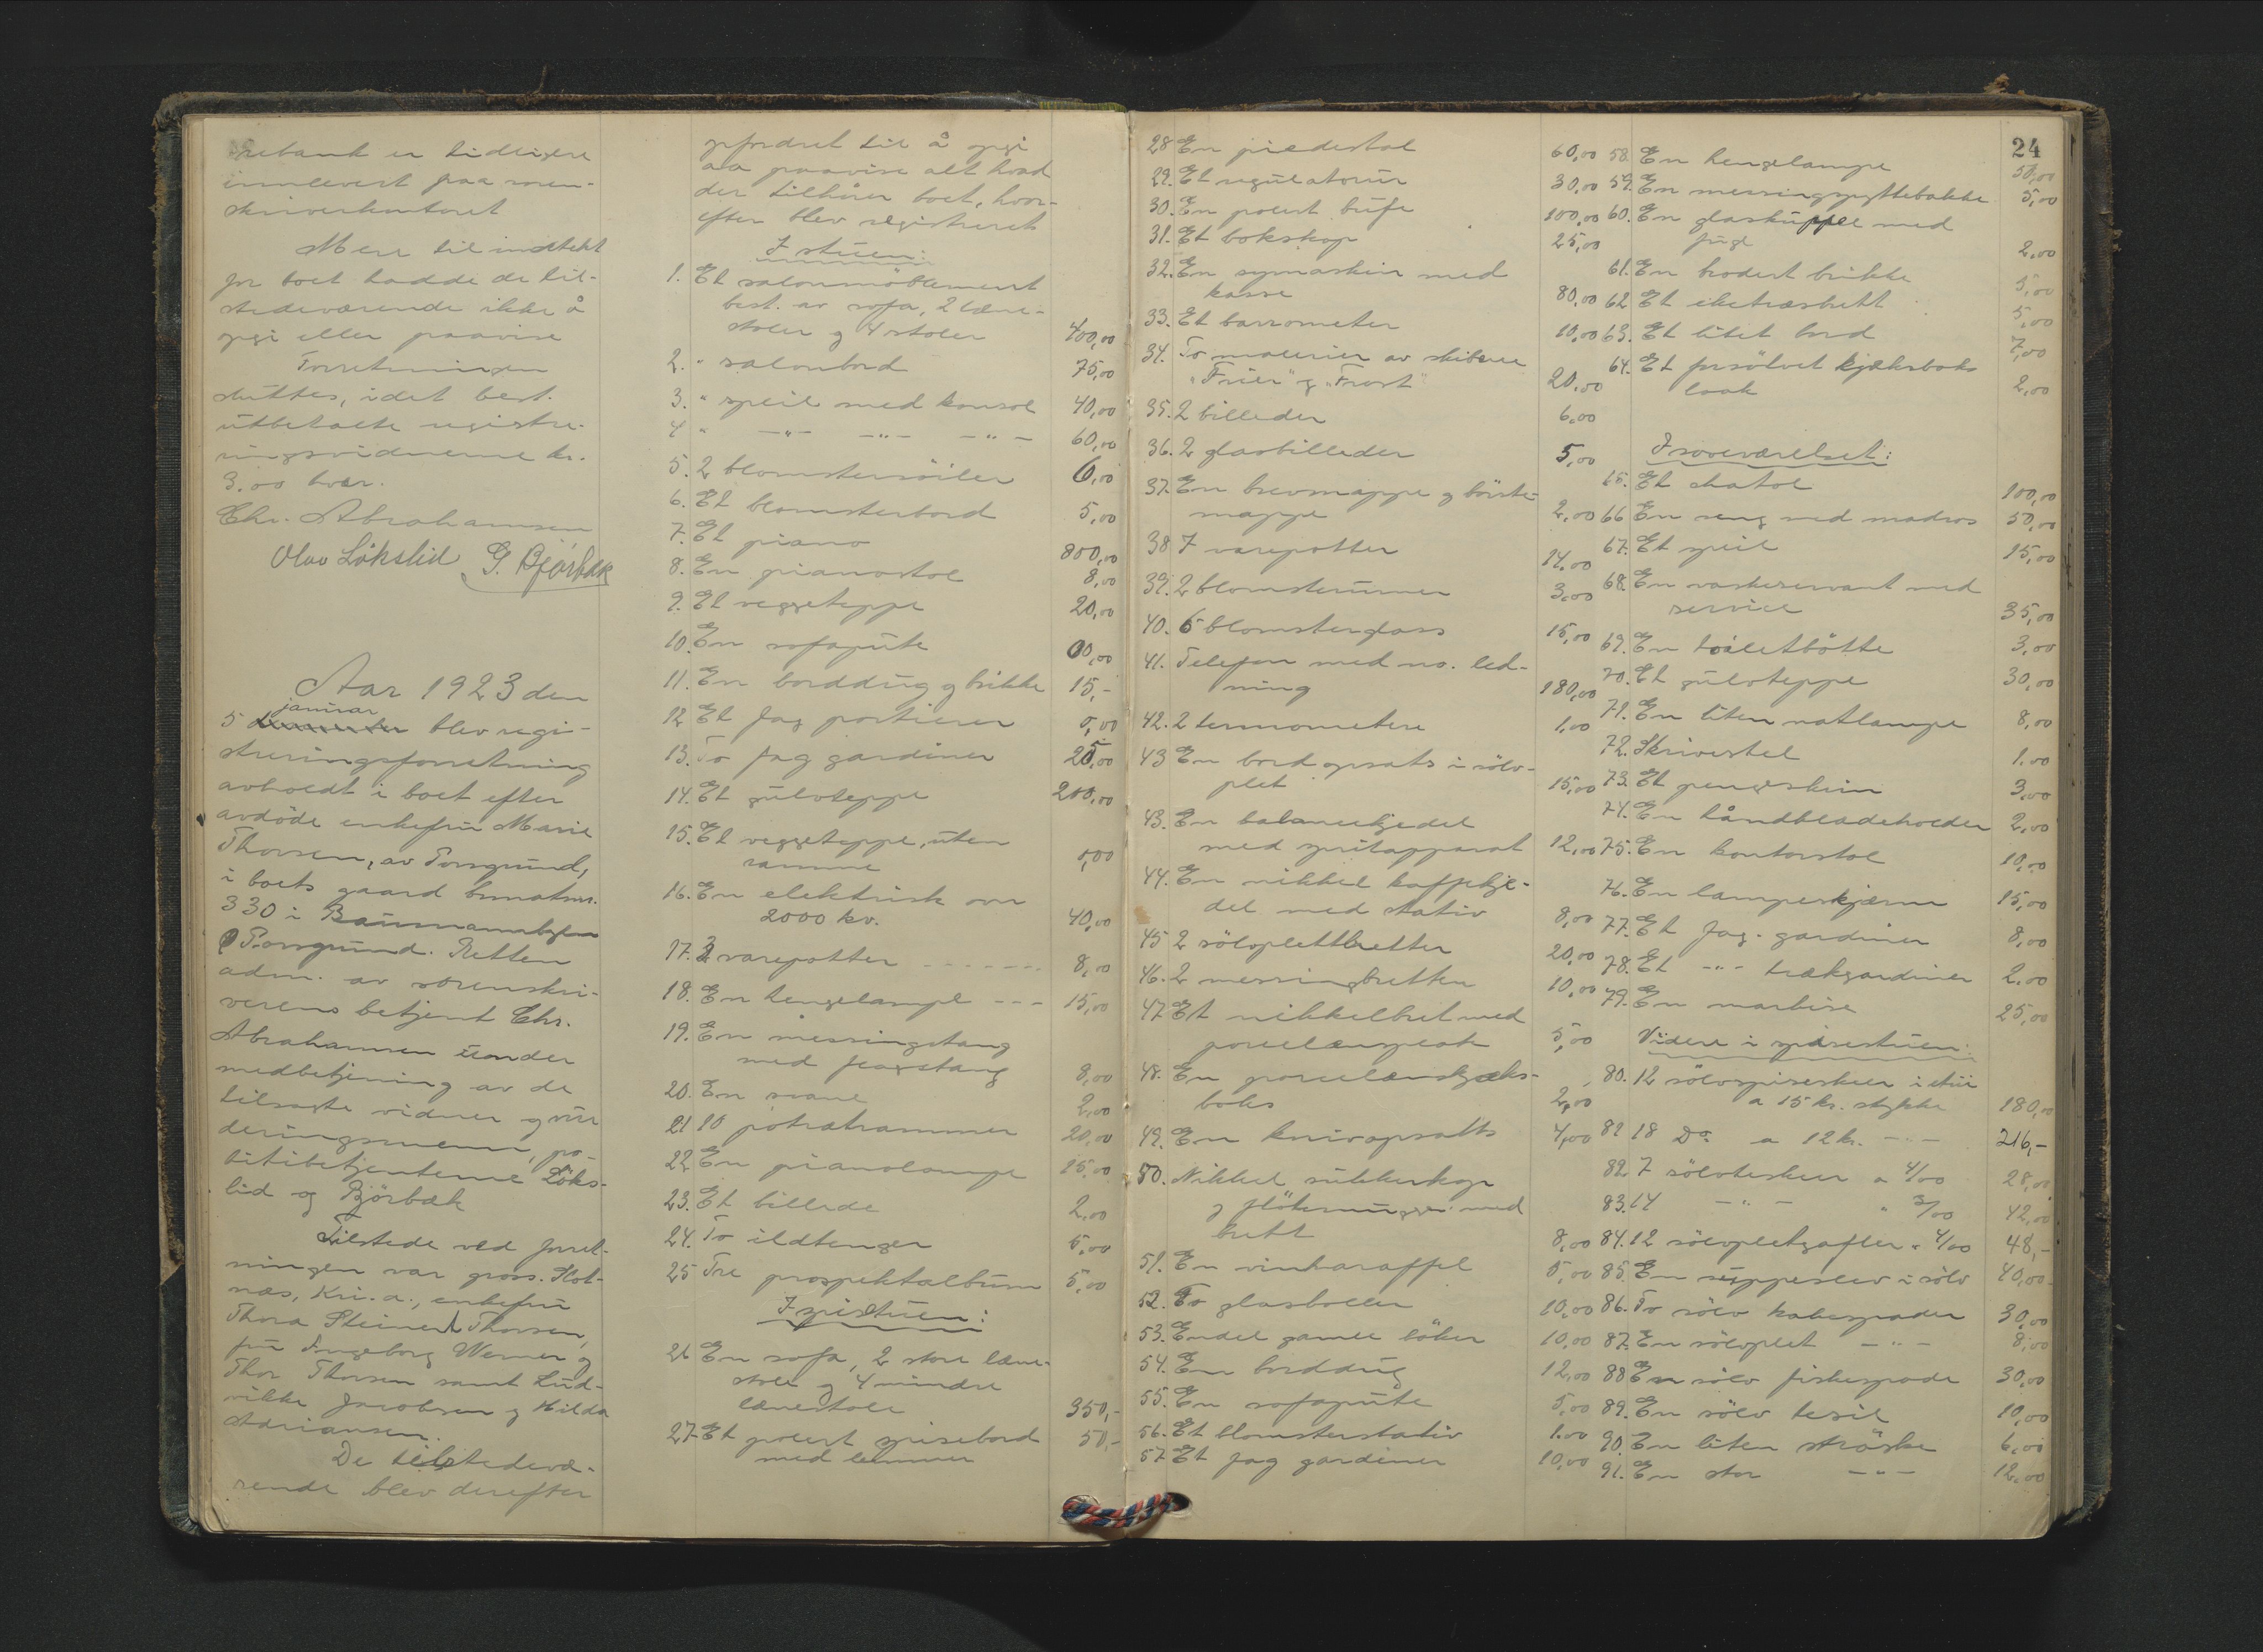 rebank er tidligere
innlevert paa soren-
skriverkontoret
Mere til indtekt
for boet hadde de til-
stedeværende ikke å
opgi eller paavise
Forretningen
sluttes, idet best.
utbetalte registre-
ringsvidnerne kr.
3,00 hver.
Chr. Abrahamsen
Olav Låkslid G. Bjørbæk
Aar 1923 den
januar
5 blev regi-
streringsforretning
avholdt i boet efter
avdöde enkefru Marie
Thorsen, av Porsgrund,
i boets gaard bmatnr.
330 i
Porsgrund. Retten
adm. av sorenskri-
verens betjent Chr.
Abrahamsen under
medbetjening av de
tilsagte vidner og vur
deringsmenn, po-
litibetjenterne Löks-
lid og Björbæk
Tilstede ved forret-
ningen var gross. Hol-
næs, Kri.a., enkefru
Thora Steinert Thorsen,
fru Ingeborg Werner og
Thor Thorsen samt Lud-
vikke Jacobsen og Hilda
Adriansen.
De tilstedevæ-
rende blev derefter
opfordret til å opgi
aa paavise alt hvad
der tilhörer boet, hvor-
efter blev registreret
I stuen:
1. Et salonmöblement
best. av sofa, 2 læne-
stoler og 4 stoler 400,00
2. " salonbord 75,00
3. " speil med konsol 40,00
4 " -"- -"- -"- 60,00
5. 2 blomstersöiler 6,00
6. Et blomsterbord 5,00
7. Et piano 800,00
8. En pianostol 8,00
9. Et veggeteppe 20,00
10. En sofapute 00,00
11. En borddug og brikke 15,-
12 Et fag portierer 0,00
13. To fag gardiner 25,00
14. Et gulvteppe 200,00
15. Et veggeteppe, uten
ramme 0,00
16. En elektrisk ovn
2000 kv. 40,00
17. varepotter 8,00
18. En hengelampe --- 15,00
19. En messingstang
med flagstang 8,00
20. En svane 2,00
21 10 potrætrammer 20,00
22 En pianolampe 15,00
23. Et billede 2,00
24. To ildtenger 5,00
25 Tre prospektalbum 5,00
I spistuen:
26 En sofa, 2 store læne-
stole og 4 mindre
lænestole 350,-
27. Et polert spisebord 50,-
med lemmer
28 En piedestal 60,00
29. Et regulatorur 30,00
30. En polert bufe 100,00
31. Et bokskap 25,00
32. En symaskin med
kasse 80,00
33. Et barrometer 10,00
34. To malerier av skibene
"Frier" og "Frost" 20,00
35. 2 billeder 6,00
36. 2 glasbilleder 5,00
37. En brevmappe og börste-
mappe 2,00
38 7 varepotter 14,00
39. 2 blomsterurner 3,00
40. 6 blomsterglass 15,00
41. Telefon med no. led-
ning 180,00
42. 2 termometere 1,00
43 En bordopsats i sölv-
plet 15,00
43. En balansekjedel
med spritapparat 12,00
44. En nikkel kaffekje-
del med stativ 8,00
45 2 sölvplettbretter 20,00
46. 2 messingbretter 10,00
47 Et nikkelbret med
porcelænsplate 5,00
48. En porcelænskjæks-
boks 2,00
49. En knivopsatts 4,00
50. Nikkel sukkerkop
og flötemugge med
brett 8,00
51. En vinkaraffel 5,00
52. To glasboller 10,00
53. Endel gamle löker 10,00
54. En borddug 12,00
55. En sofapute 5,00
56. Et blomsterstativ 1.00
57 Et fag gardiner 10,00
24
58. En hengelampe 50,00
59. En messingspyttebakke 5,00
60. En glaskuppel med
fugl 2,00
61. En brodert brikke 5,00
62 Et eketræsbrett 5,00
63. Et litet bord 7,00
64. Et forsölvet kjæksboks
laak 2,00
I soveværelset:
65. Et chatol 100,00
66 En seng med madras 50,00
67. Et speil 15,00
68. En vaskeservant med
service 35,00
69. En toiletbötte 3,00
70. Et gulvteppe 30,00
71. En liten natlampe 8,00
72. Skrivestel 1.00
73. Et pengeskrin 3,00
74. En håndbladeholder 2,00
75. En kontorstol 10,00
76. En lampeskjerm 15,00
77. Et fag. gardiner 8,00
78. Et -"- trækgardiner 2,00
79. En markise 25,00
Videre i spisestuen:
80. 12 sölvspiseskeer i etui
a 15 kr. stykke 180,00
81 18 Do a 12 kr. -"- 216,-
82. 7 sölvteskeer a 4/00 28,00
83. 14 -"- " 3/00 42,00
84. 12 sölvpletgafler " 4/00 48,-
85. En suppeslev i sölv 40,00
86. To sölv kakespader 30,00
87. En sölvplet -"- 8,00
88 En sölv fiskespade 30,00
89. En sölv tesil 10,00
90. En liten ströske 6,00
91. En stor -"- 12,00